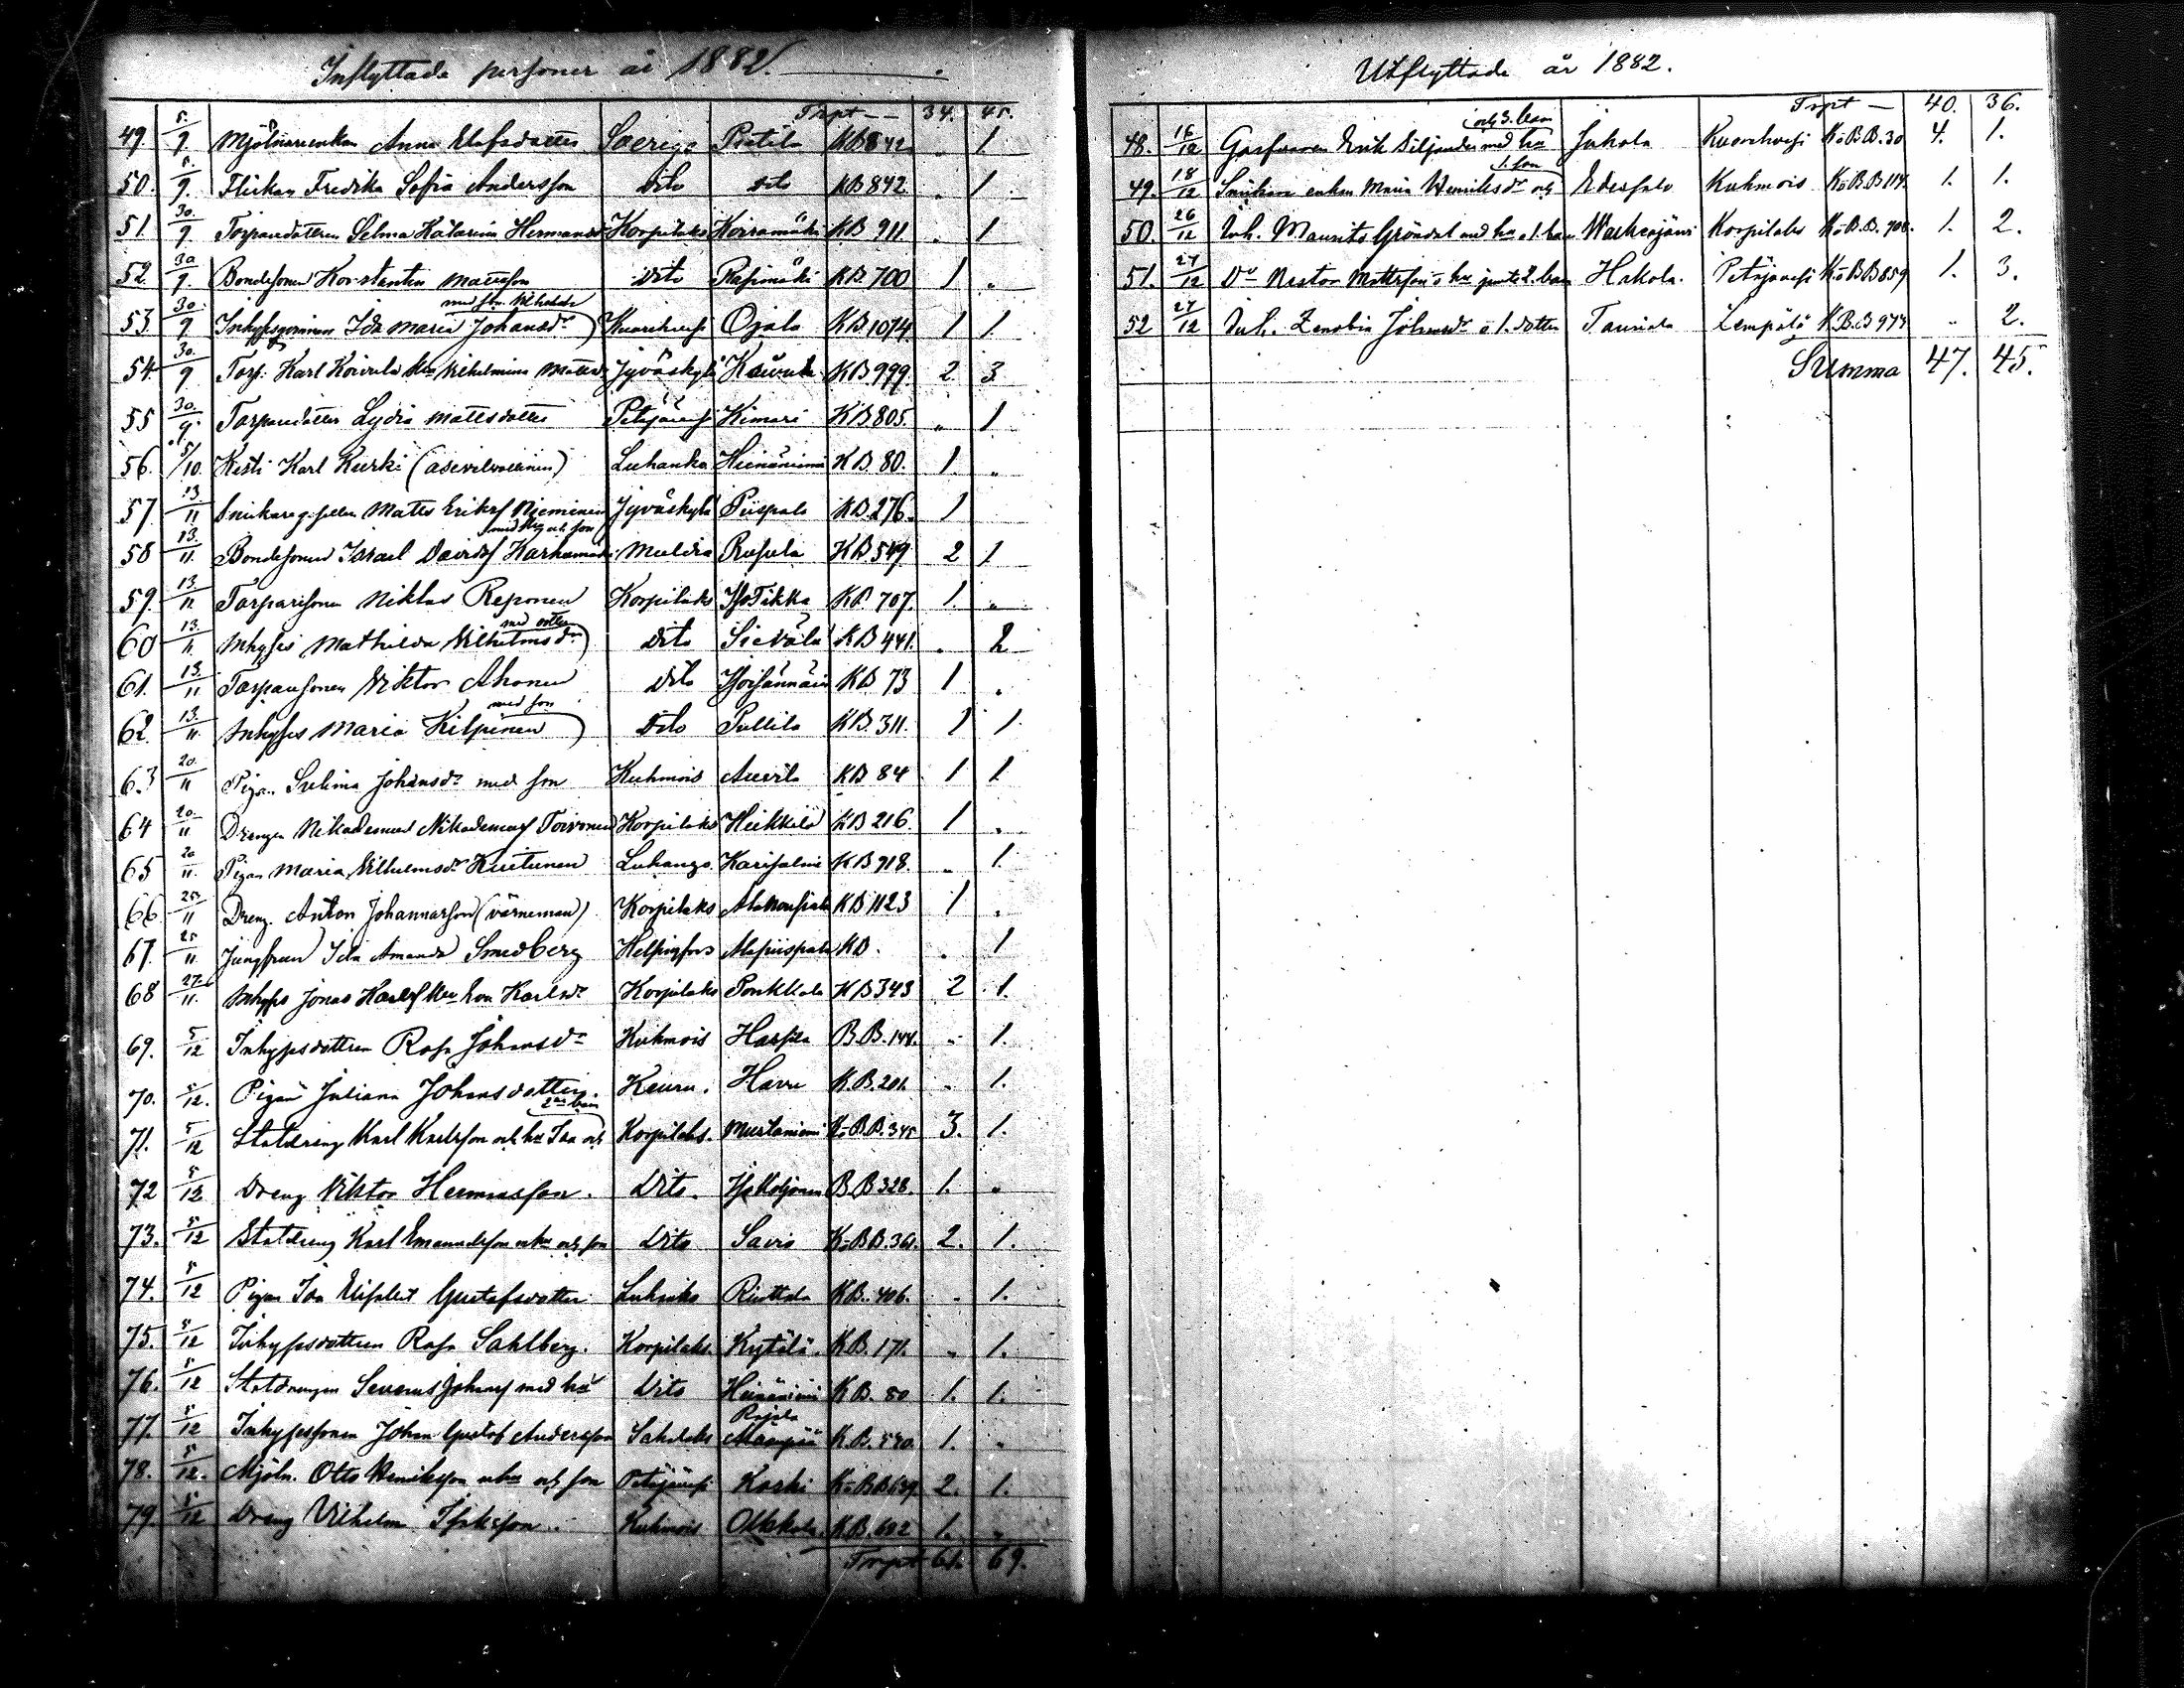 Inflyttade personer år 1882.
Trpt 34. 45.
49. 5/9. Mjölnarenkan Anna Elofsdotter Sverige Pietilä KB 842 „ 1.
50. 5/9. Flickan Fredika Sofia Andersson dito dito KB 842 „ 1
51. 30/9. Torpardottren Selma Katarina Hermansd: Korpilaks KB 911. „ 1
52. 30/9. Bondesonen Konstantin Mattsson dito KB. 700 1 „
med son Vilhelm
53. 30/9 Ida Maria Johansd:r Kuorehvesi Ojala KB. 1074 1 1.
54. 30/9 Torp: Karl Koivula Hu Vilhelmina Mattsd: Jyväskylä Koivula KB 999. 2. 3.
55 30/9. Torpardotter Lydia Mattsdotter Petäjävesi Kimari KB 805. „ 1
56. 5/10. Kesti Karl Kurki Luhanka Hienäniemi KB 80. 1. „
57 13/11 Snickaregesellen Matts Eriksf Nieminen Jyväskylä Piispala KB. 276. 1
med Hu och son
58 13./11. Bondesonen Israel Davidsf Multia KB 549 2 1
59. 13/11. Torparesonen Niklas Reponen Korpilaks KB 707. 1. „
med dotter
60 13./11. Inhyses Mathilda Vilhelmsd:r dito Sievälä KB 441. „ 2
61. 13./11 Torparsonen Viktor Ahonen dito KB 73 1 „
med son
62. 13./11. Inhyses Maria Kilpinen dito Pullila KB. 311. 1 1
63 20./11 Pigan Selima Johansd:r med son Kuhmois Auvila KB 84 1 1
64 20./11 Drengen Nikademus Nikademusf Toivonen Korpilaks Heikkilä KB 216. 1 „
65 20/11. Pigan Maria Vilhelmsd:r Kuitunen Luhango. Karisalmi KB 918. „ 1.
66. 25/11 Dreng. Anton Johannarson (värneman) Korpilaks KB 1123 1 „
67. 25/11. Jungfrun Ida Amanda Smedberg Helsingfors Alapiispala KB. „ 1
68 27./11. Inhyses Jonas Karlsf Hu Eva Karlsd:r Korpilaks Ponkkala KB 343 2 1.
69. 5/12 Inhysesdottren Rosa Johansd:r Kuhmois Harsila B.B. 144. „ 1.
70. 5/12. Pigan Juliana Johansdotter Keuru. Havu K.B. 201. „ 1.
2ne barn
71. 5/12 Statdreng Karl Karlsson och hu Ida och Korpilaks. Mustaniemi K-B.B. 345 3. 1.
72 5/12 Dreng Viktor Hermansson. Dito. B.B 328. 1. „
73. 5/12 Statdreng Karl Emanuelsson m hu och son Dito Savio K-BB. 361. 2. 1.
74. 5/12 Pigan Ida Elisabet Gustafsdotter Riuttala KB. 406. „ 1.
75. 5/12 Inhysesdottren Rosa Sahlberg. Korpilaks. Kytälä. KB. 171. „ 1.
76. 5/12 Statdrengen Severus Johansf med hu Dito Heinäniemi KB. 80 1. 1.
77. 5/12 Inhysessonen Johan Gustaf Andersson Sahalaks K.B. 540. 1. „
78. 5/12. Mjöln. Otto Henriksson m hu och son Petäjävesi Koski K-BB 639. 2. 1.
79. 5/12 Dreng Vilhelm Isaksson. Kuhmois Olkkola KB. 692 1. „
Trspt 61. 69.
Utflyttade år 1882.
Trspt 40. 36.
och 3. barn
48. 16/12 Garfvaren Erik Siljander med hu Jukola Kuorehvesi K-B.B. 30 4. 1.
1. son
49. 18/12 Snickare enkan Maria Henriksd:r och Edessalo Kuhmois K-B.B 114. 1. 1.
50. 26/12 Inh. Maurits Gröndal med hu o 1. barn Korpilaks K-B.B. 708. 1. 2.
51. 27/12 D:o Nestor Mattsson o hu jemte 2. barn Hakola. Petäjävesi K-BB 859 1. 3.
52 27/12 Inh. Zenobia Johansd:r o 1. dotter Taurila Lempälä K.B.B 973 „ 2.
Summa 47. 45.